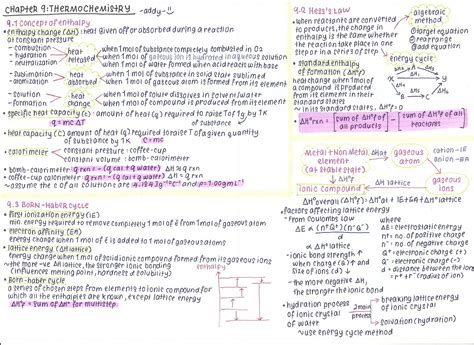 CHAPTER 9: THERMOCHEMISTRY -addy-
9.1 concept of enthalpy
• enthalpy change (ΔH) heat given off or absorbed during a reaction
at constant pressure
- combustion
- hydration
- neutralization
heat released
when 1 mol of substance completely combusted in O2
when 1 mol of gaseous ion is hydrated in aqueous solution
when 1 mol of water formed when acid react with base
- sublimation
- atomization
heat absorbed
when 1 mol of substance in solid state sublimed
- solution
- formation
heat change
when 1 mol of solute dissolves in solvent/water
when 1 mol of compound is produced from its element
• specific heat capacity (c) amount of heat (q) required to raise T of 1g by 1°C
of substance
q = mcΔT
• heat capacity (C) amount of heat (q) required to raise T of a given quantity
of substance by 1K
• calorimeter
constant pressure : coffee-cup
constant volume : bomb-calorimeter
• bomb-calorimeter
• coffee-cup calorimeter
~ assume the c of all solutions are 4.18 Jg⁻¹°C⁻¹ and ρ = 1.00gmL⁻¹
9.2 HESS'S LAW
• when reactants are converted
to products, the change in
enthalpy is the same whether
the reaction take place in one
step or in a series of step
algebraic method
@alter equation
@rearrange
@add equation
energy cycle:
• standard enthalpy
of formation (ΔH°f)
heat change when 1 mol of
compound is produced
from its element in their
standard states
~ in its standard states, ΔH°f = 0
• ΔH°rxn = [sum of ΔH°f of all products] - [sum of ΔH°f of all reactants]
Metal + Non Metal element
(at stable state)
gaseous atom
cation - IE
anion - EA
gaseous ions
ionic compound
ΔH lattice
9.3 BORN-HABER CYCLE
• first ionization energy (IE)
min. energy required to remove completely 1 mol of e from 1 mol of gaseous atom
• electron affinity (EA)
energy change when 1 mol of e is added to 1 mol of gaseous atoms
• lattice energy (ΔH lattice)
energy change when 1 mol of solid ionic compound formed from its gaseous ions
~ the more -ve ΔH lattice, the stronger ionic bonding
(influences melting point, hardness & solubility)
• Born-haber cycle
a series of chosen steps from elements to ionic compound for
which all the enthalpies are known, except lattice energy
enthalpy
• factors affecting lattice energy
from Coulomb's law
where
ΔE = electrostatic energy
n+ = no. of positive charge
n- = no. of negative charge
Q+ = electronic charge (+)
Q- = electronic charge (-)
d = distance between the ions
r+ + r- (radius of ion)
∝ ΔH lattice
- ionic bond strength ↑
when charge (Q) ↑ and
size of ions (d) ↓
- the more negative ΔH,
the stronger the ionic bond
• hydration process
of ionic crystal
of water
2 main process
breaking lattice energy
of ionic crystal
solvation (hydration)
~ use energy cycle method